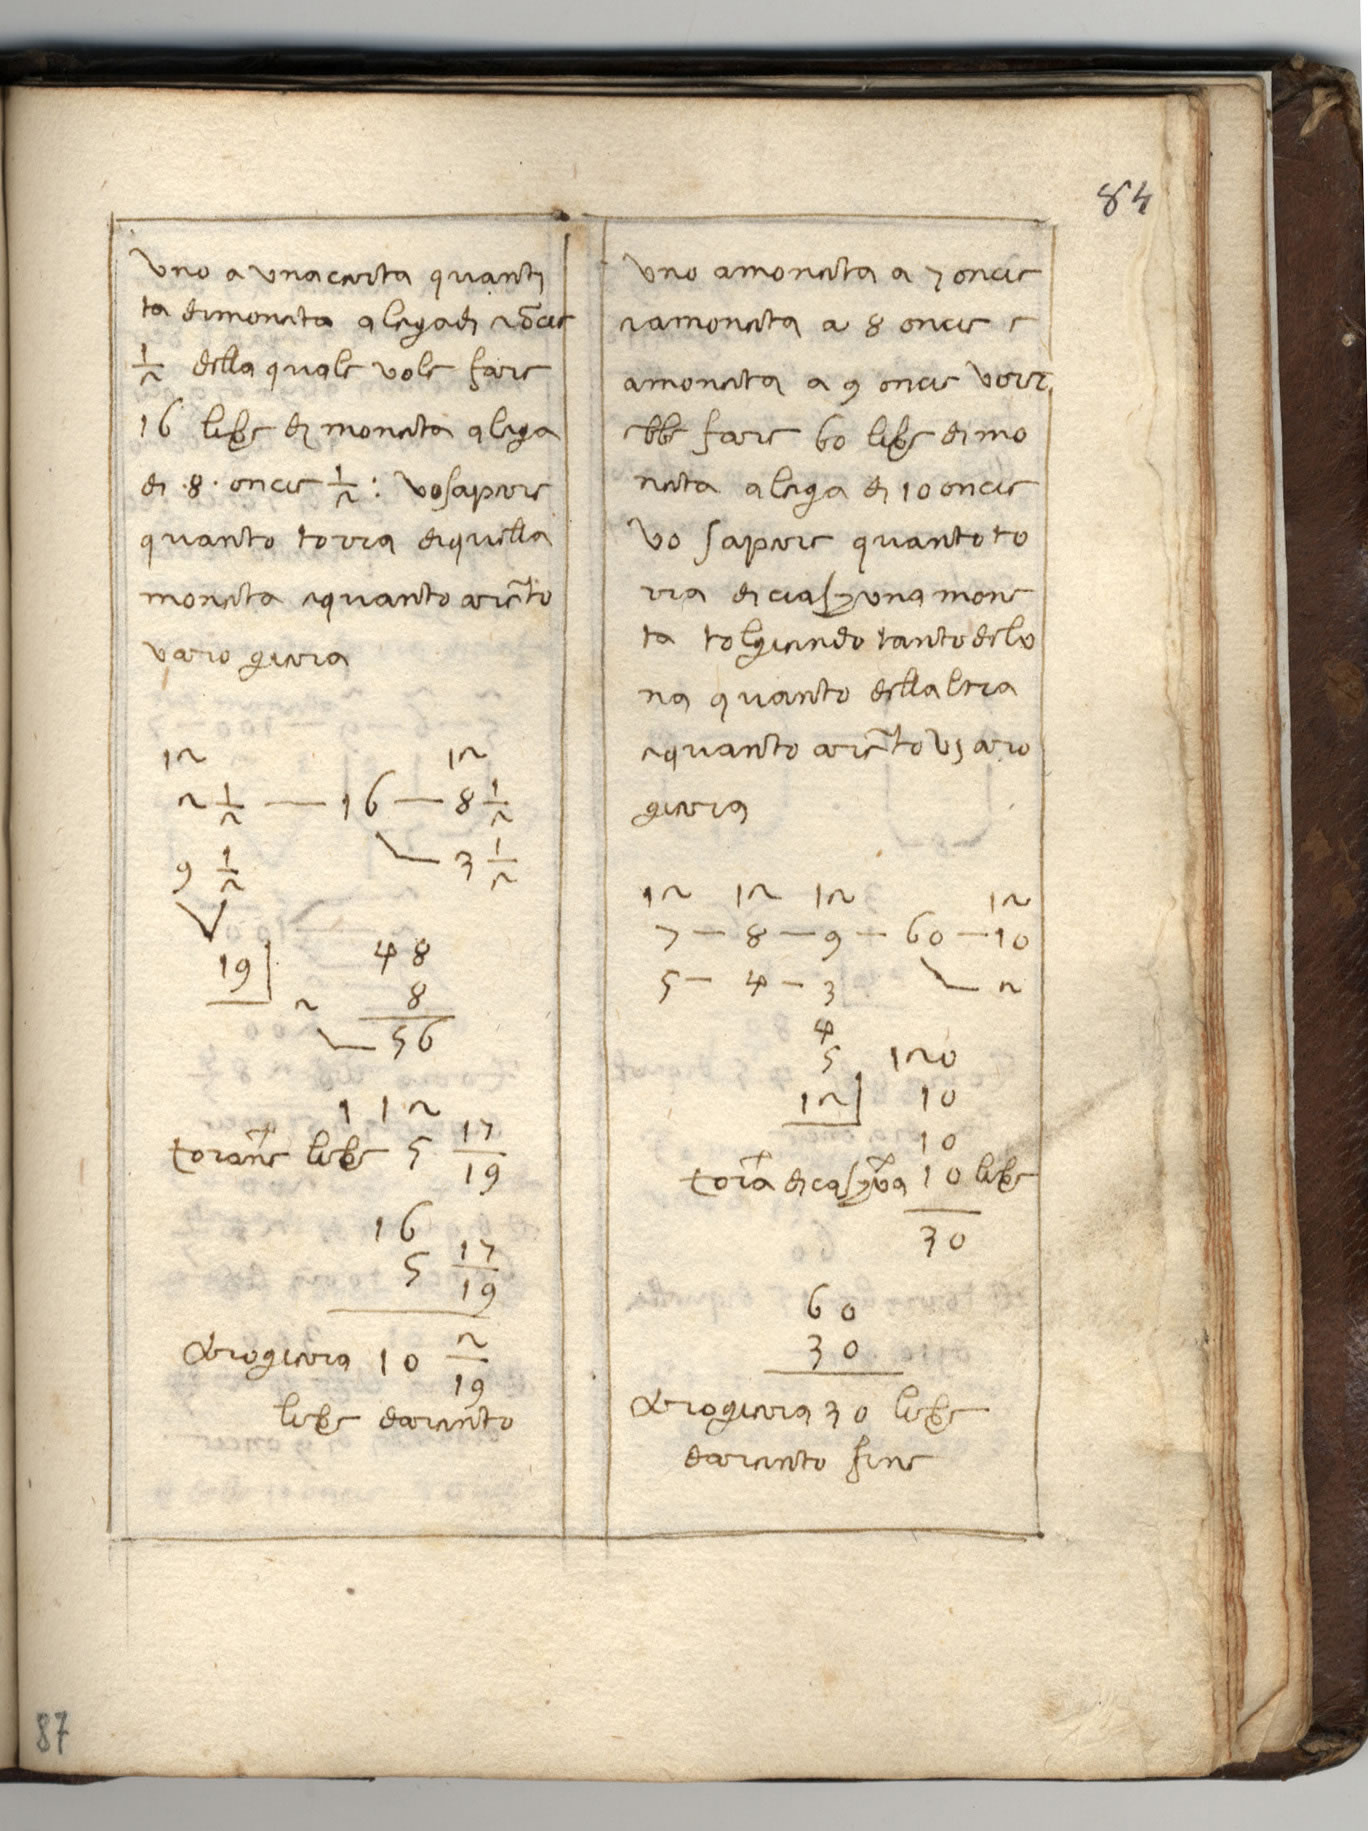 84
uno a una certa quanti
ta di moneta a lega di 2 õcie
1/2 della quale vole fare
16 libre di moneta a lega
di .8. oncie 1/2: vo sapere
quanto torra di quella
moneta e quanto ariẽto
v aro giera
12 12
2 1/2 — 16 — 8 1/2
9 1/2 3 1/2
19 48
8
2 56
1 1 2
torãne libre 5 17/19
16
5 17/19
Arogiera 10 2/19
libre d ariento
uno a moneta a 7 oncie
e a moneta a 8 oncie e
a moneta a 9 oncie vorr
ebbe fare 60 libre di mo
neta a lega di 10 oncie
vo sapere quanto to
rra di ciascuna mone
ta togliendo tanto de lu
na quanto dell altra
e quanto ariẽto vj aro
giera
12 12 12 12
7 — 8 — 9 — 60 — 10
5 — 4 — 3 2
4
5 120
12 10
10
torã di casuna 10 libre
30
60
30
Arogiera 30 libre
d ariento fine
87